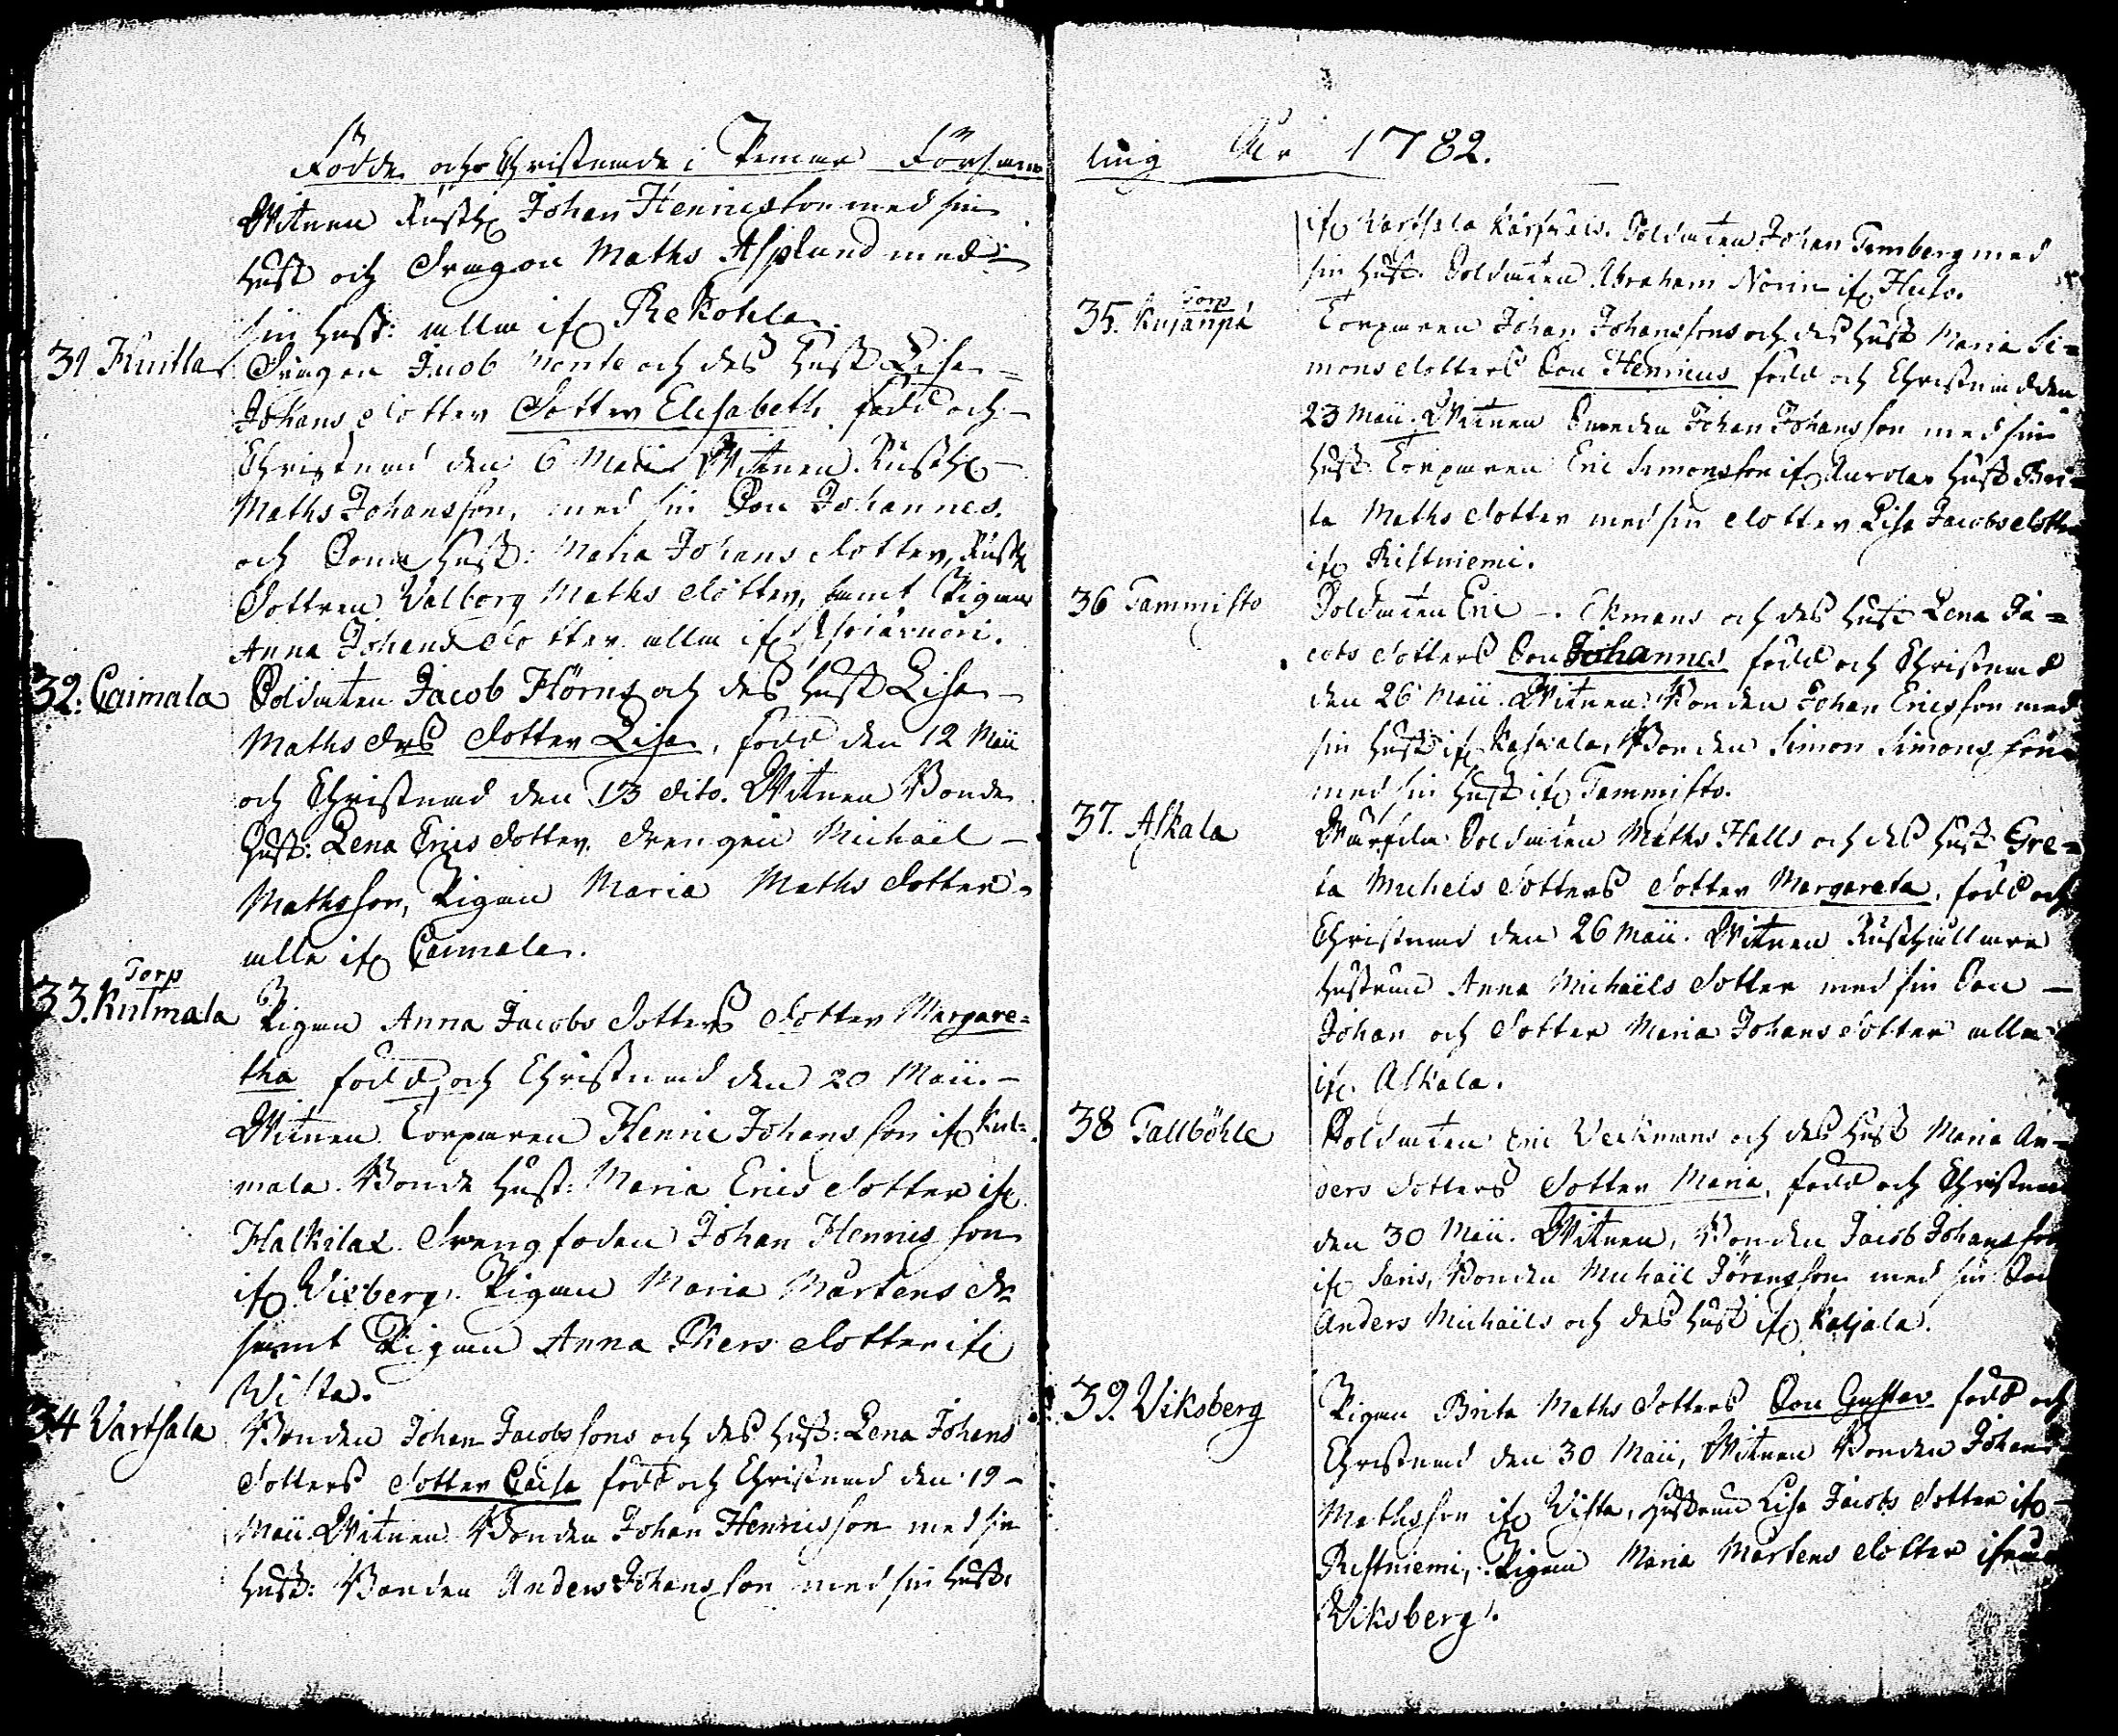 Födde och Christnade i Pemar Försam
ling År 1782.
Witnen Rusth. Johan Henricsson med sin
hust och Dragon Maths Asplund med
sin hust: alla ifr. Rekohla.
31 Huitla Dragon Jacob Monte och des hust Lisa
Johans dotter Dotter Elisabeth född och
Christnad den 6 Maii Witnen Rusth.
Maths Johansson, med sin Son Johannes.
och Sone hust: Maria Johans dotter, Rusth.
Dottren Valborg Maths dotter, samt Pigan
Anna Johans dotter alla ifr.
32. Caimala Soldaten Jacob Hörns och des hust Lisa
Maths drs dotter Lisa, född den 12 Maii
och Christnad den 13 dito. Witnen Bonde
hust: Lena Erics dotter, drengen Michaël
Mathsson, Pigan Maria Maths dotter
alla ifr. Caimala.
Torp
33. Kulmala Pigan Anna Jacobs dotters dotter Margare=
tha född och Christnad den 20 Maii.
Witnen Torparen Henric Johansson ifr. Kul=
mala. Bonde hust: Maria Erics dotter ifr.
Halkilax Drengfoden Johan Henricsson
ifr. Vixberg. Pigan Maria Mårtens dr
samt Pigan Anna Phers dotter ifr.
Wista.
34 Vartsala Bonden Johan Jacobssons och des hust: Lena Johans
dotters dotter Caisa född och Christnad den 19
Maii Witnen Bonden Johan Henricsson med sin
hust: Bonden Anders Johansson med sin hust:
ifr Vartsala Soldaten Johan Tamberg med
sin hust. Soldaten Abraham Norin ifr. Huso.
Torp
35. Kujanpä Torparen Johan Johanssons och des hust Maria Si=
mons dotters Son Henricus född och Christnad den
23 Maii. Witnen Bonden Johan Johansson med sin
hust Torparen Eric Simonsson ifr. hust Bri=
ta Maths dotter med sin dotter Lisa Jacobs dotter
ifr. Ristniemi.
36 Tammisto Soldaten Eric Ekmans och des hust Lena Ja=
cobs dotters Son Johannes född och Christnad
den 26 Maii. Witnen Bonden Johan Ericsson med
sin hust ifr. Bonden Simon Simonsson
med sin hust ifr. Tammisto.
37. Askala Soldaten Maths Halls och des hust Gre=
ta Michels dotters dotter Margareta, född och
Christnad den 26 Maii. Witnen Rusthållare
hustrun Anna Michaëls dotter med sin Son
Johan och dotter Maria Johans dotter alla
ifr. Askala.
38 Tallböhle Soldaten Eric Veckmans och des hust Maria An=
ders dotters dotter Maria, född och Christnad
den 30 Maii. Witnen, Bonden Jacob Johansson
ifr. Saris, Bonden Michaël Jöransson med sin Son
Anders Michaëls och des hust ifr. Kaljala.
39. Viksberg Pigan Brita Maths dotters Son Gustav född och
Christnad den 30 Maii, Witnen Bonden Johan
Mathsson ifr Vista, hustrun Lisa Jacobs dotter ifr
Ristniemi, Pigan Maria Mårtens dotter ifrån
Viksberg.